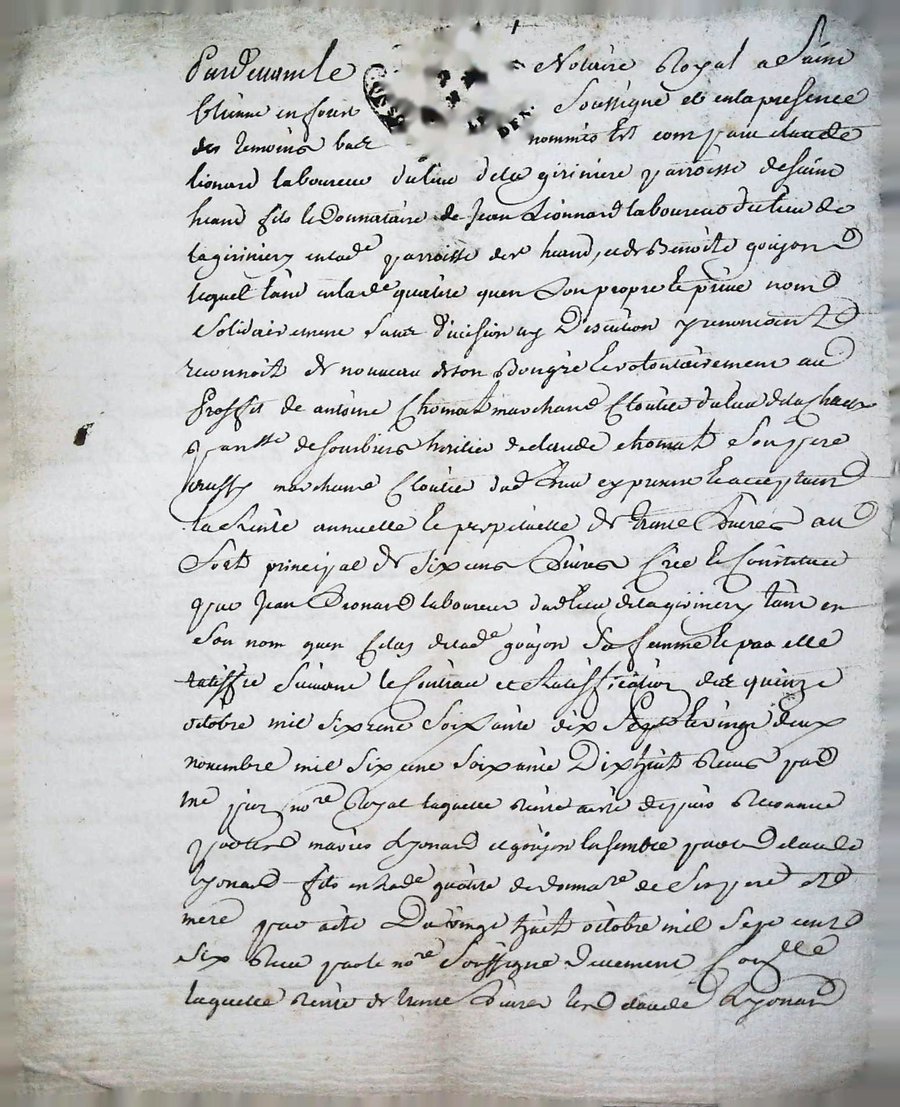 Pardevant le Notaire Royal a Saint
Etienne en forest Soussigné et en la presence
des temoins bas nommés Est comparu claude
lionard laboureur du lieu de la giriniere parroisse de saint
heand fils et Donnataire de Jean Lionnard laboureur du lieu de
la giriniery en lad.e parroisse de st heand, et de Benoite goujon
lequel tant en lad.e qualité quen son propre et privé nom
Solidairement sans division ny Discution y renoncant
reconnoit de nouveau de son Bongré et volontairement au
Proffit de antoine Chomat marchand Cloutier du lieu de la
parr.sse de Sorbiers heritier de claude chomat Son pere
aussy marchand Cloutier dud lieu cy present et acceptant
la Rente annuelle et perpetuelle de trente Livres au
Sort principal de Six cens Livres Crée et Constituée
par Jean Lionard laboureur dud lieu de la giriniery tant en
Son nom quen celuy de lad.e goujon Sa femme et par elle
ratiffié Suivant le Contract et Ratiffication des quinze
octobre mil Six cent Soixante dix Sept et vingt deux
novembre mil Six cent soixante Dix huit Receus par
me no.re Royal laquelle rente auroit depuis Reconnue
par lesd mariés Lyonard et goujon Ensemble par led claude
Lyonard fils en lad.e qualité de donna.re de Sesd pere et
mere par acte Du vingt huit octobre mil Sept cent
Six Receu par le no.re Soussigné Deuement Conrollé
laquelle Rente de trente Livres led claude Lyonard